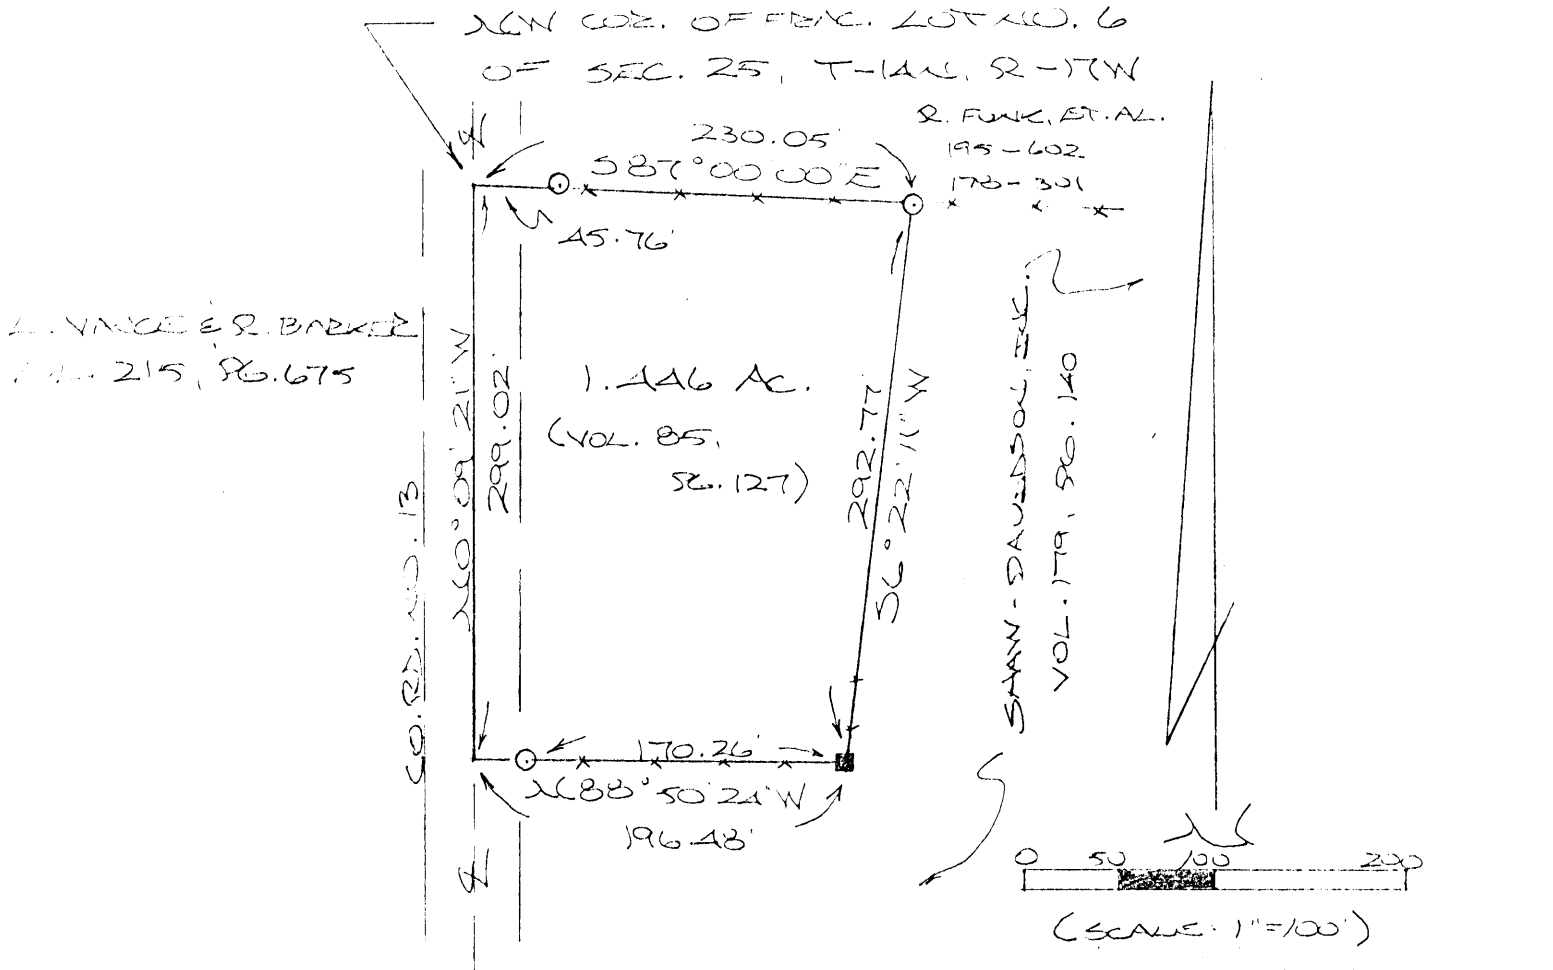 NW COR. OF FRAC. LOT NO. 6
OF SEC. 25, T-14N, R-17W
R. FUNK, ET. AL.
195-602
178-301
230.05'
S 87°00'00" E
45.76'
VANCE & R. BARKER
215, PG. 675
N 0°09'21" W
299.02'
1.446 AC.
(VOL. 85,
PG. 127)
292.77'
S 6°22'11" W
SHAW-DAVIDSON, INC.
VOL. 179, PG. 140
CO. RD. NO. 13
170.26'
N 88°50'24" W
196.48'
N
0 50 100 200
(SCALE: 1"=100')